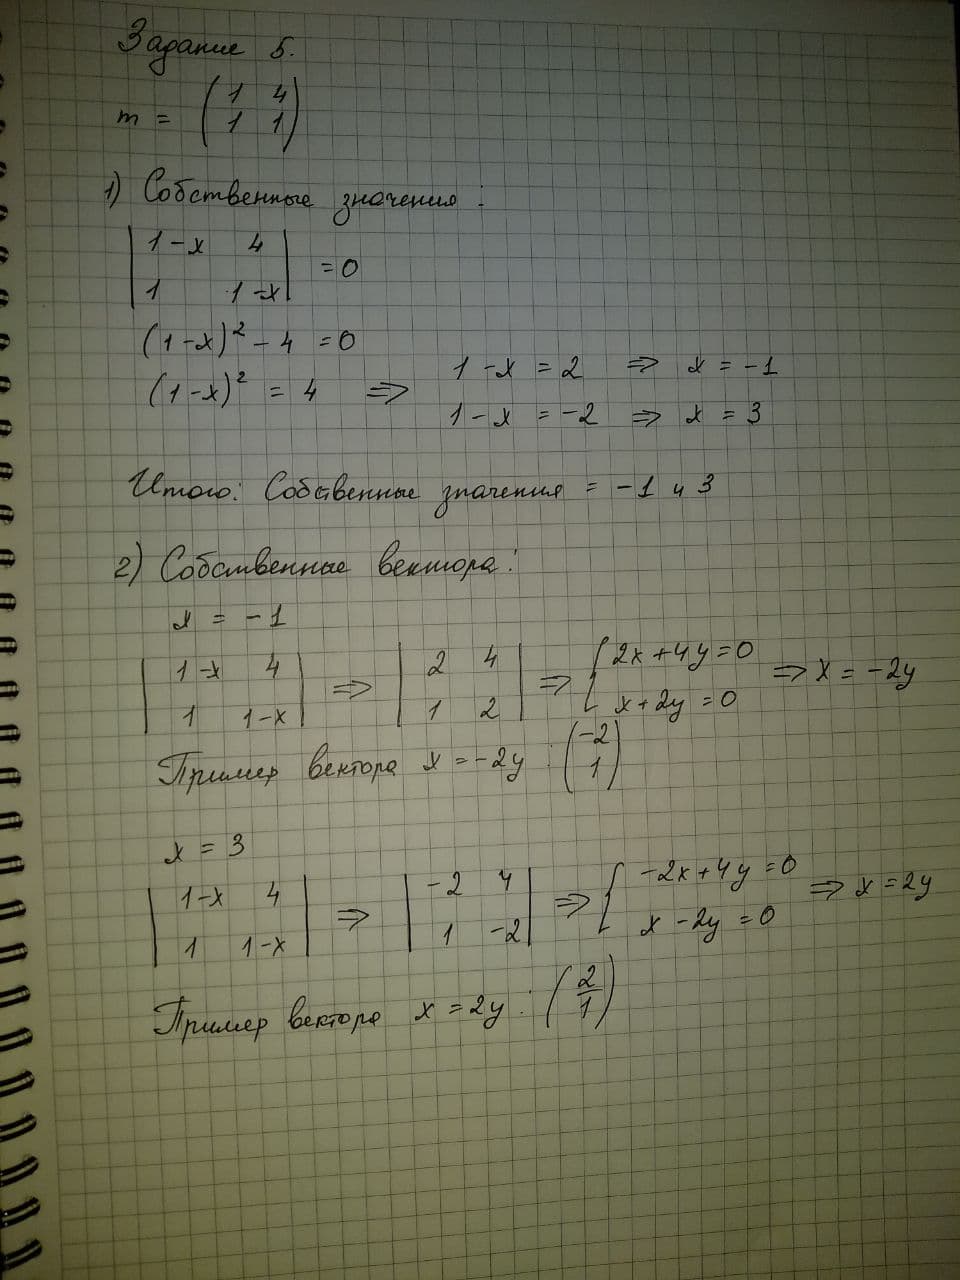 Задание 5.
m = (1 4
1 1)
1) Собственные значения:
|1-x 4
1 1-x| = 0
(1-x)² - 4 = 0
(1-x)² = 4 ⇒ 1-x = 2 ⇒ x = -1
1-x = -2 ⇒ x = 3
Итого: Собственные значения = -1 и 3
2) Собственные вектора:
x = -1
|1-x 4| ⇒ |2 4| ⇒ {2x+4y=0 ⇒ x = -2y
|1 1-x| |1 2| x+2y=0
Пример вектора x = -2y : (-2
1)
x = 3
|1-x 4| ⇒ |-2 4| ⇒ {-2x+4y=0 ⇒ x=2y
|1 1-x| |1 -2| x-2y=0
Пример вектора x = 2y : (2
1)